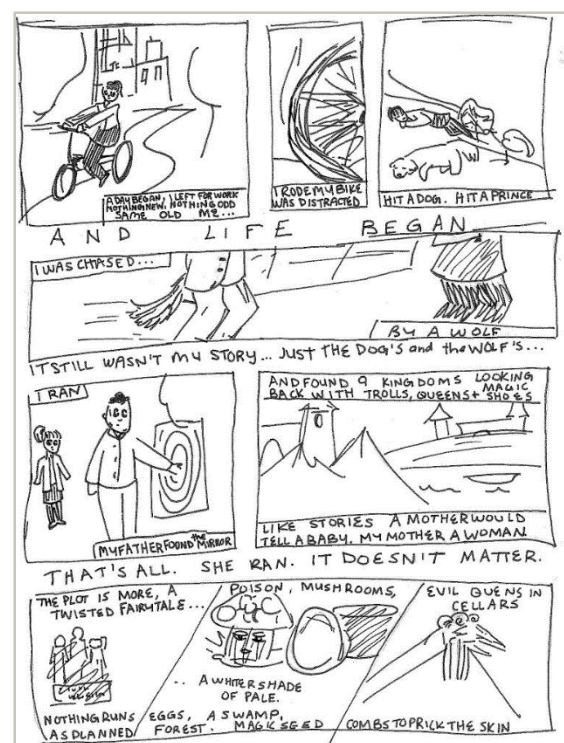 A DAY BEGAN, I LEFT FOR WORK
NOTHING NEW. NOTHING ODD
SAME OLD ME...
I RODE MY BIKE
WAS DISTRACTED
HIT A DOG. HIT A PRINCE
AND LIFE BEGAN
I WAS CHASED...
BY A WOLF
IT STILL WASN'T MY STORY... JUST THE DOG'S and the WOLF'S...
I RAN
MY FATHER FOUND the MIRROR
AND FOUND 9 KINGDOMS LOOKING
BACK WITH TROLLS, QUEENS + MAGIC SHOES
LIKE STORIES A MOTHER WOULD
TELL A BABY. MY MOTHER A WOMAN.
THAT'S ALL. SHE RAN. IT DOESN'T MATTER.
THE PLOT IS MORE, A
TWISTED FAIRYTALE...
NOTHING RUNS
AS PLANNED
POISON, MUSHROOMS,
.. A WHITER SHADE
OF PALE.
EGGS, A SWAMP,
FOREST. MAGIC SEED
EVIL QUENS IN
CELLARS
COMBS TO PRICK THE SKIN